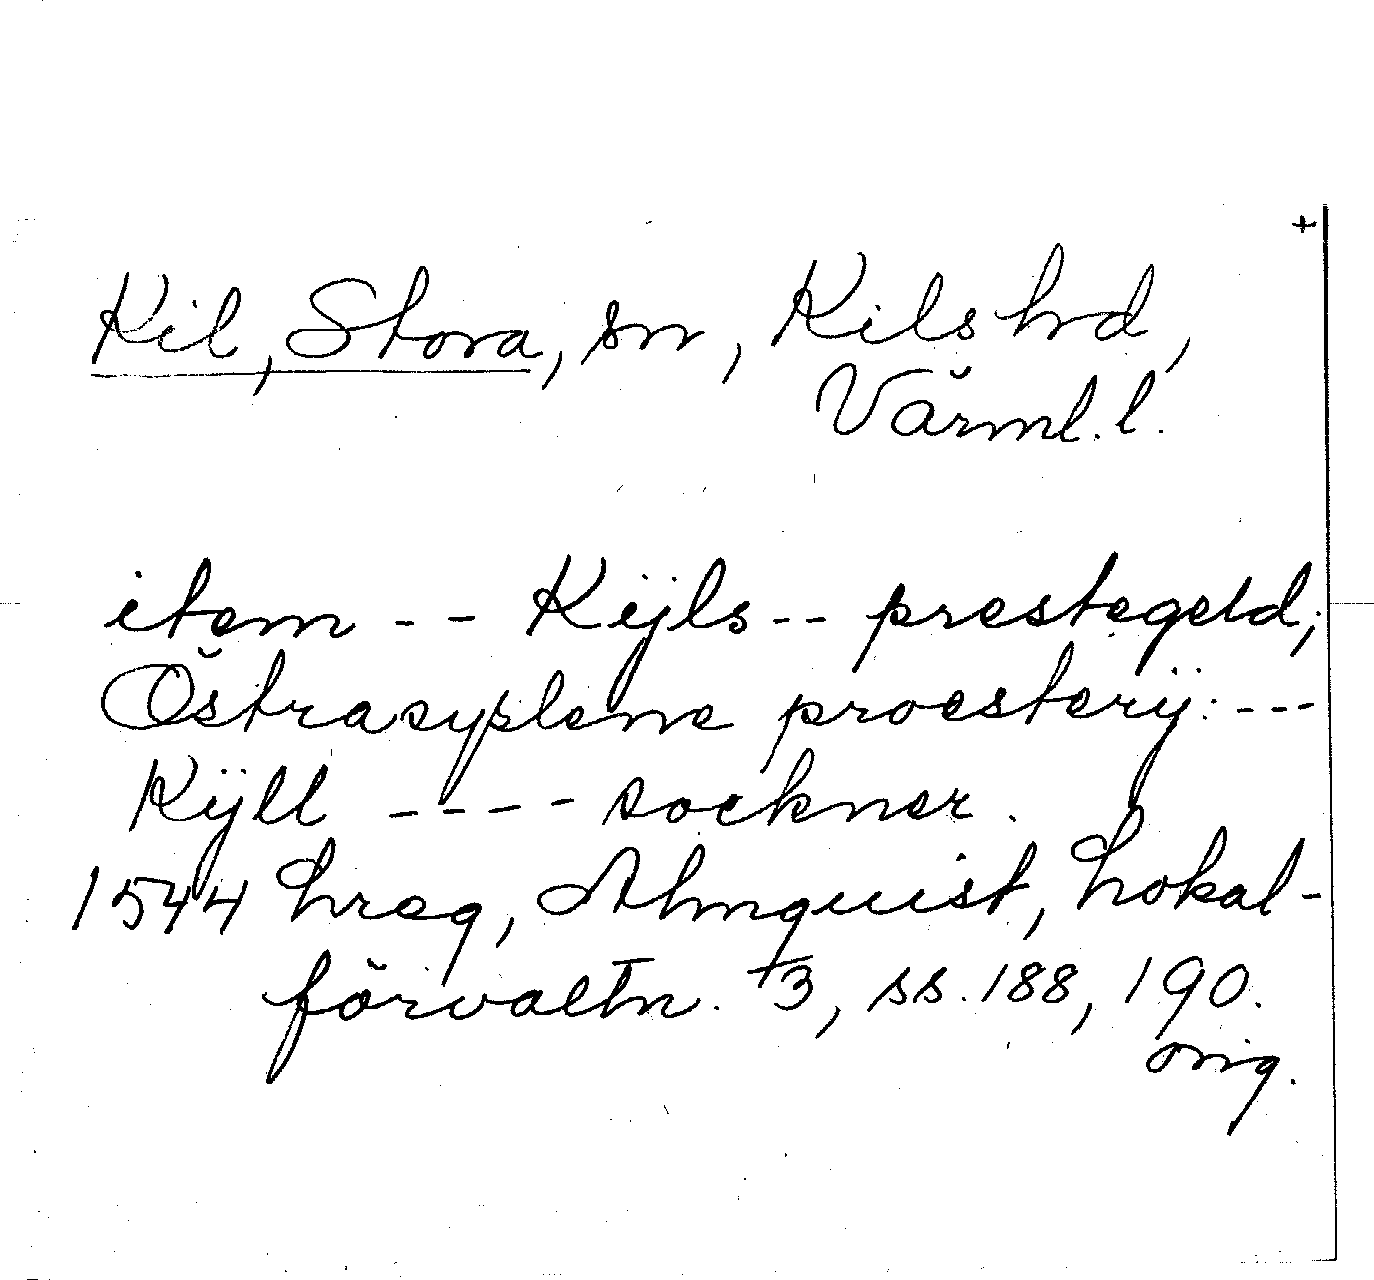 +
Kil, Stora, sn, Kils hd,
Värml. l.
item -- Kijls -- prestegeld;
Östrasyslene proesterij: ---
Kÿll ---- sockner.
1544 hreg, Almquist, Lokal-
förvaltn. 3, ss. 188, 190.
orig.